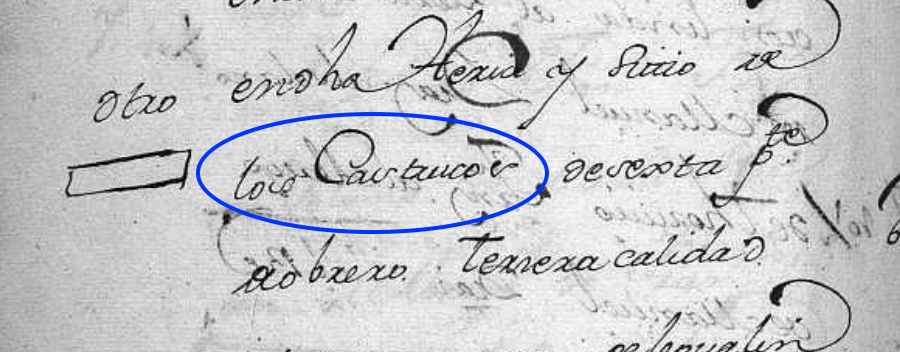 otro endha Heria y Sitio de
los Castaucos desexta pte
de obrero. Terzera calidad